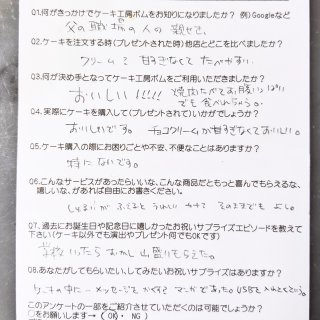 01.何がきっかけでケーキ工房ボムをお知りになりましたか? 例)Googleなど
父の職場の人の親せき、
02.ケーキを注文する時(プレゼントされた時)他店とどこを比べましたか?
クリームで 甘すぎなくて たべやすい。
03.何が決め手となってケーキ工房ボムをご利用いただきましたか?
おいしい!!!!! 焼肉たべてお腹いっぱい
でも 食べれちゃう。
04.実際にケーキを購入して(プレゼントされて)いかがでしょうか?
おいしいです。 チョコクリームが甘すぎなくておいしい。
05.ケーキ購入の際にお困りごとや不安、不便なことはありますか?
特にないです。
06.こんなサービスがあったらいいな、こんな商品だともっと喜んでもらえるな、
嬉しいな、があれば自由にお書きください。
しゅるいが ふえると うれしい
そのままでも よし。
Q7.過去にお誕生日や記念日に嬉しかったお祝いサプライズエピソードを教えて
下さい(ケーキ以外でも演出やプレゼント何でもOKです)
学校いったら おかし 山盛りもらえた。
08.あなたがしてもらいたい、してみたいお祝いサプライズはありますか?
ケーキの中に メッセージ
このアンケートの一部をご紹介させていただくのは可能でしょうか?
○をお願いします→( OK ・ NG )